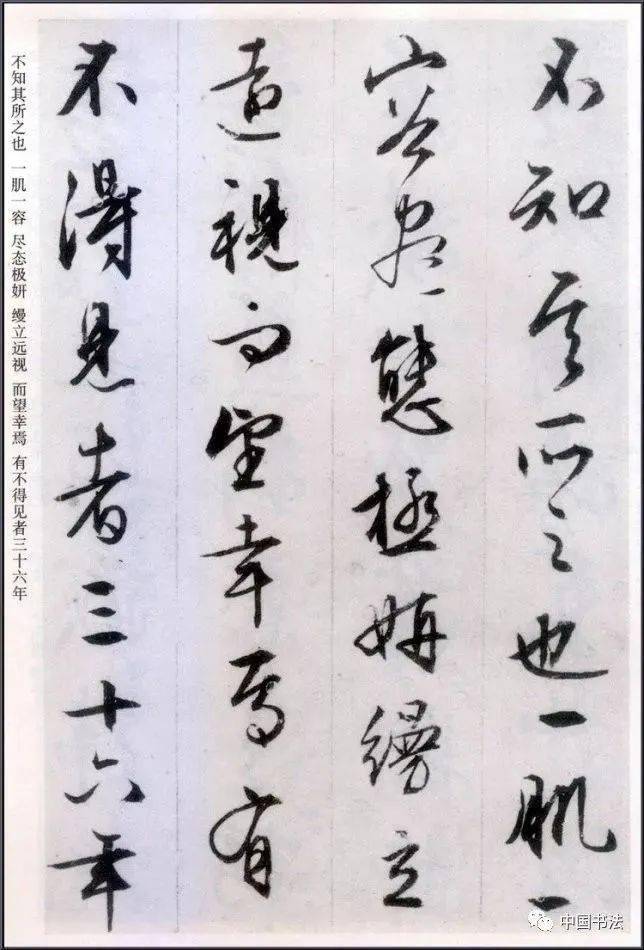 不知其所之也一肌一
容盡態極妍縵立
遠視而望幸焉有
不得見者三十六年
不知其所之也 一肌一容 尽态极妍 缦立远视 而望幸焉 有不得见者三十六年
中国书法